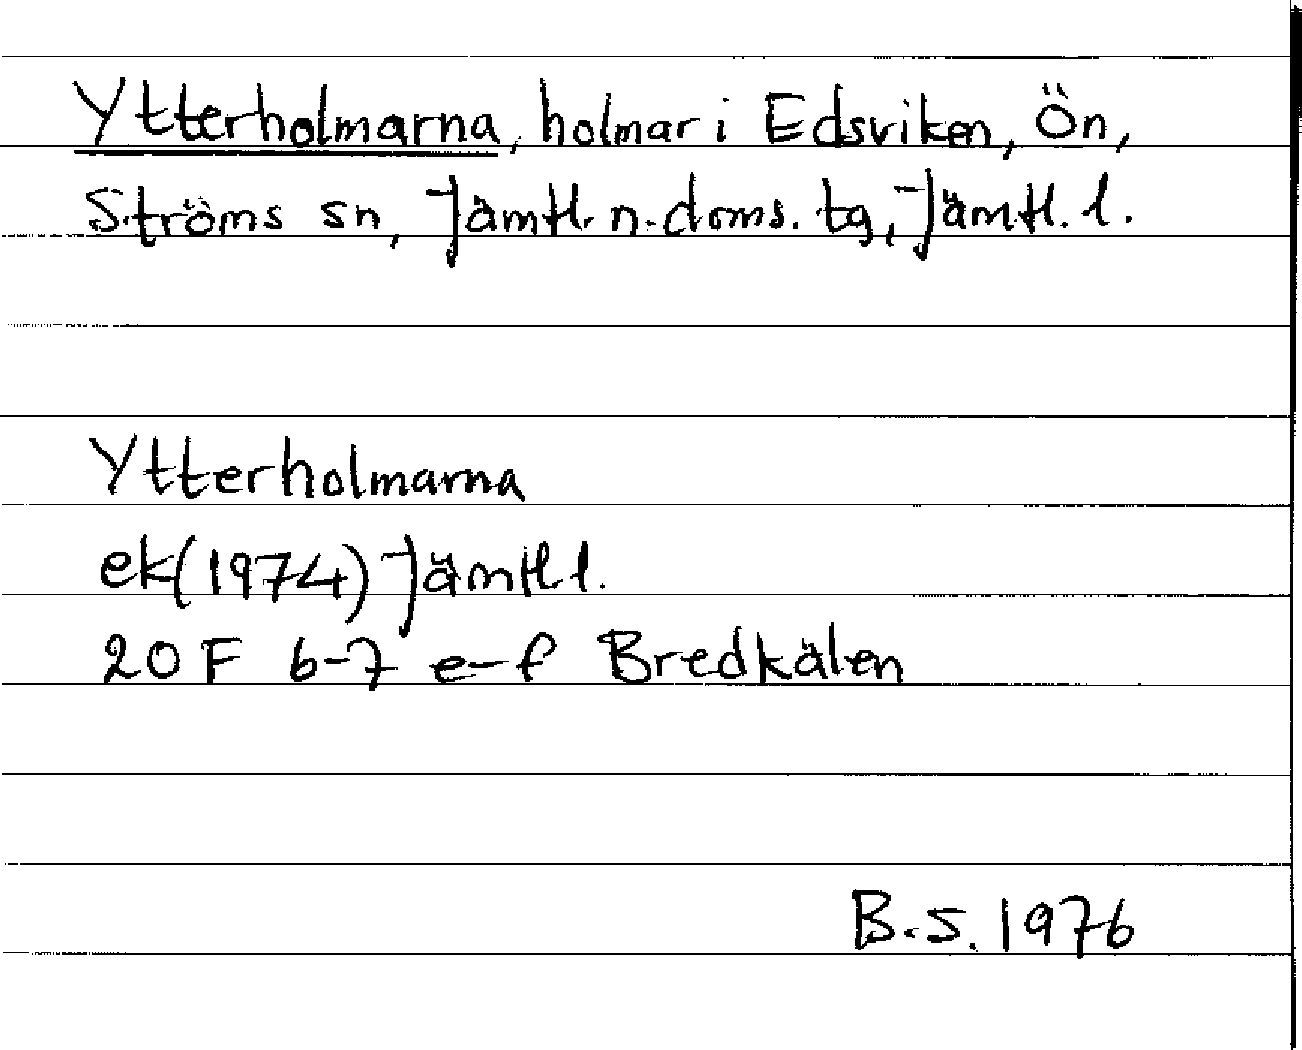 Ytterholmarna, holmar i Edsviken, Ön,
Ströms sn, Jämtl. n. doms. tg, Jämtl. l.
Ytterholmarna
ek(1974) Jämtl l.
20 F 6-7 e-f Bredkälen
B.S. 1976